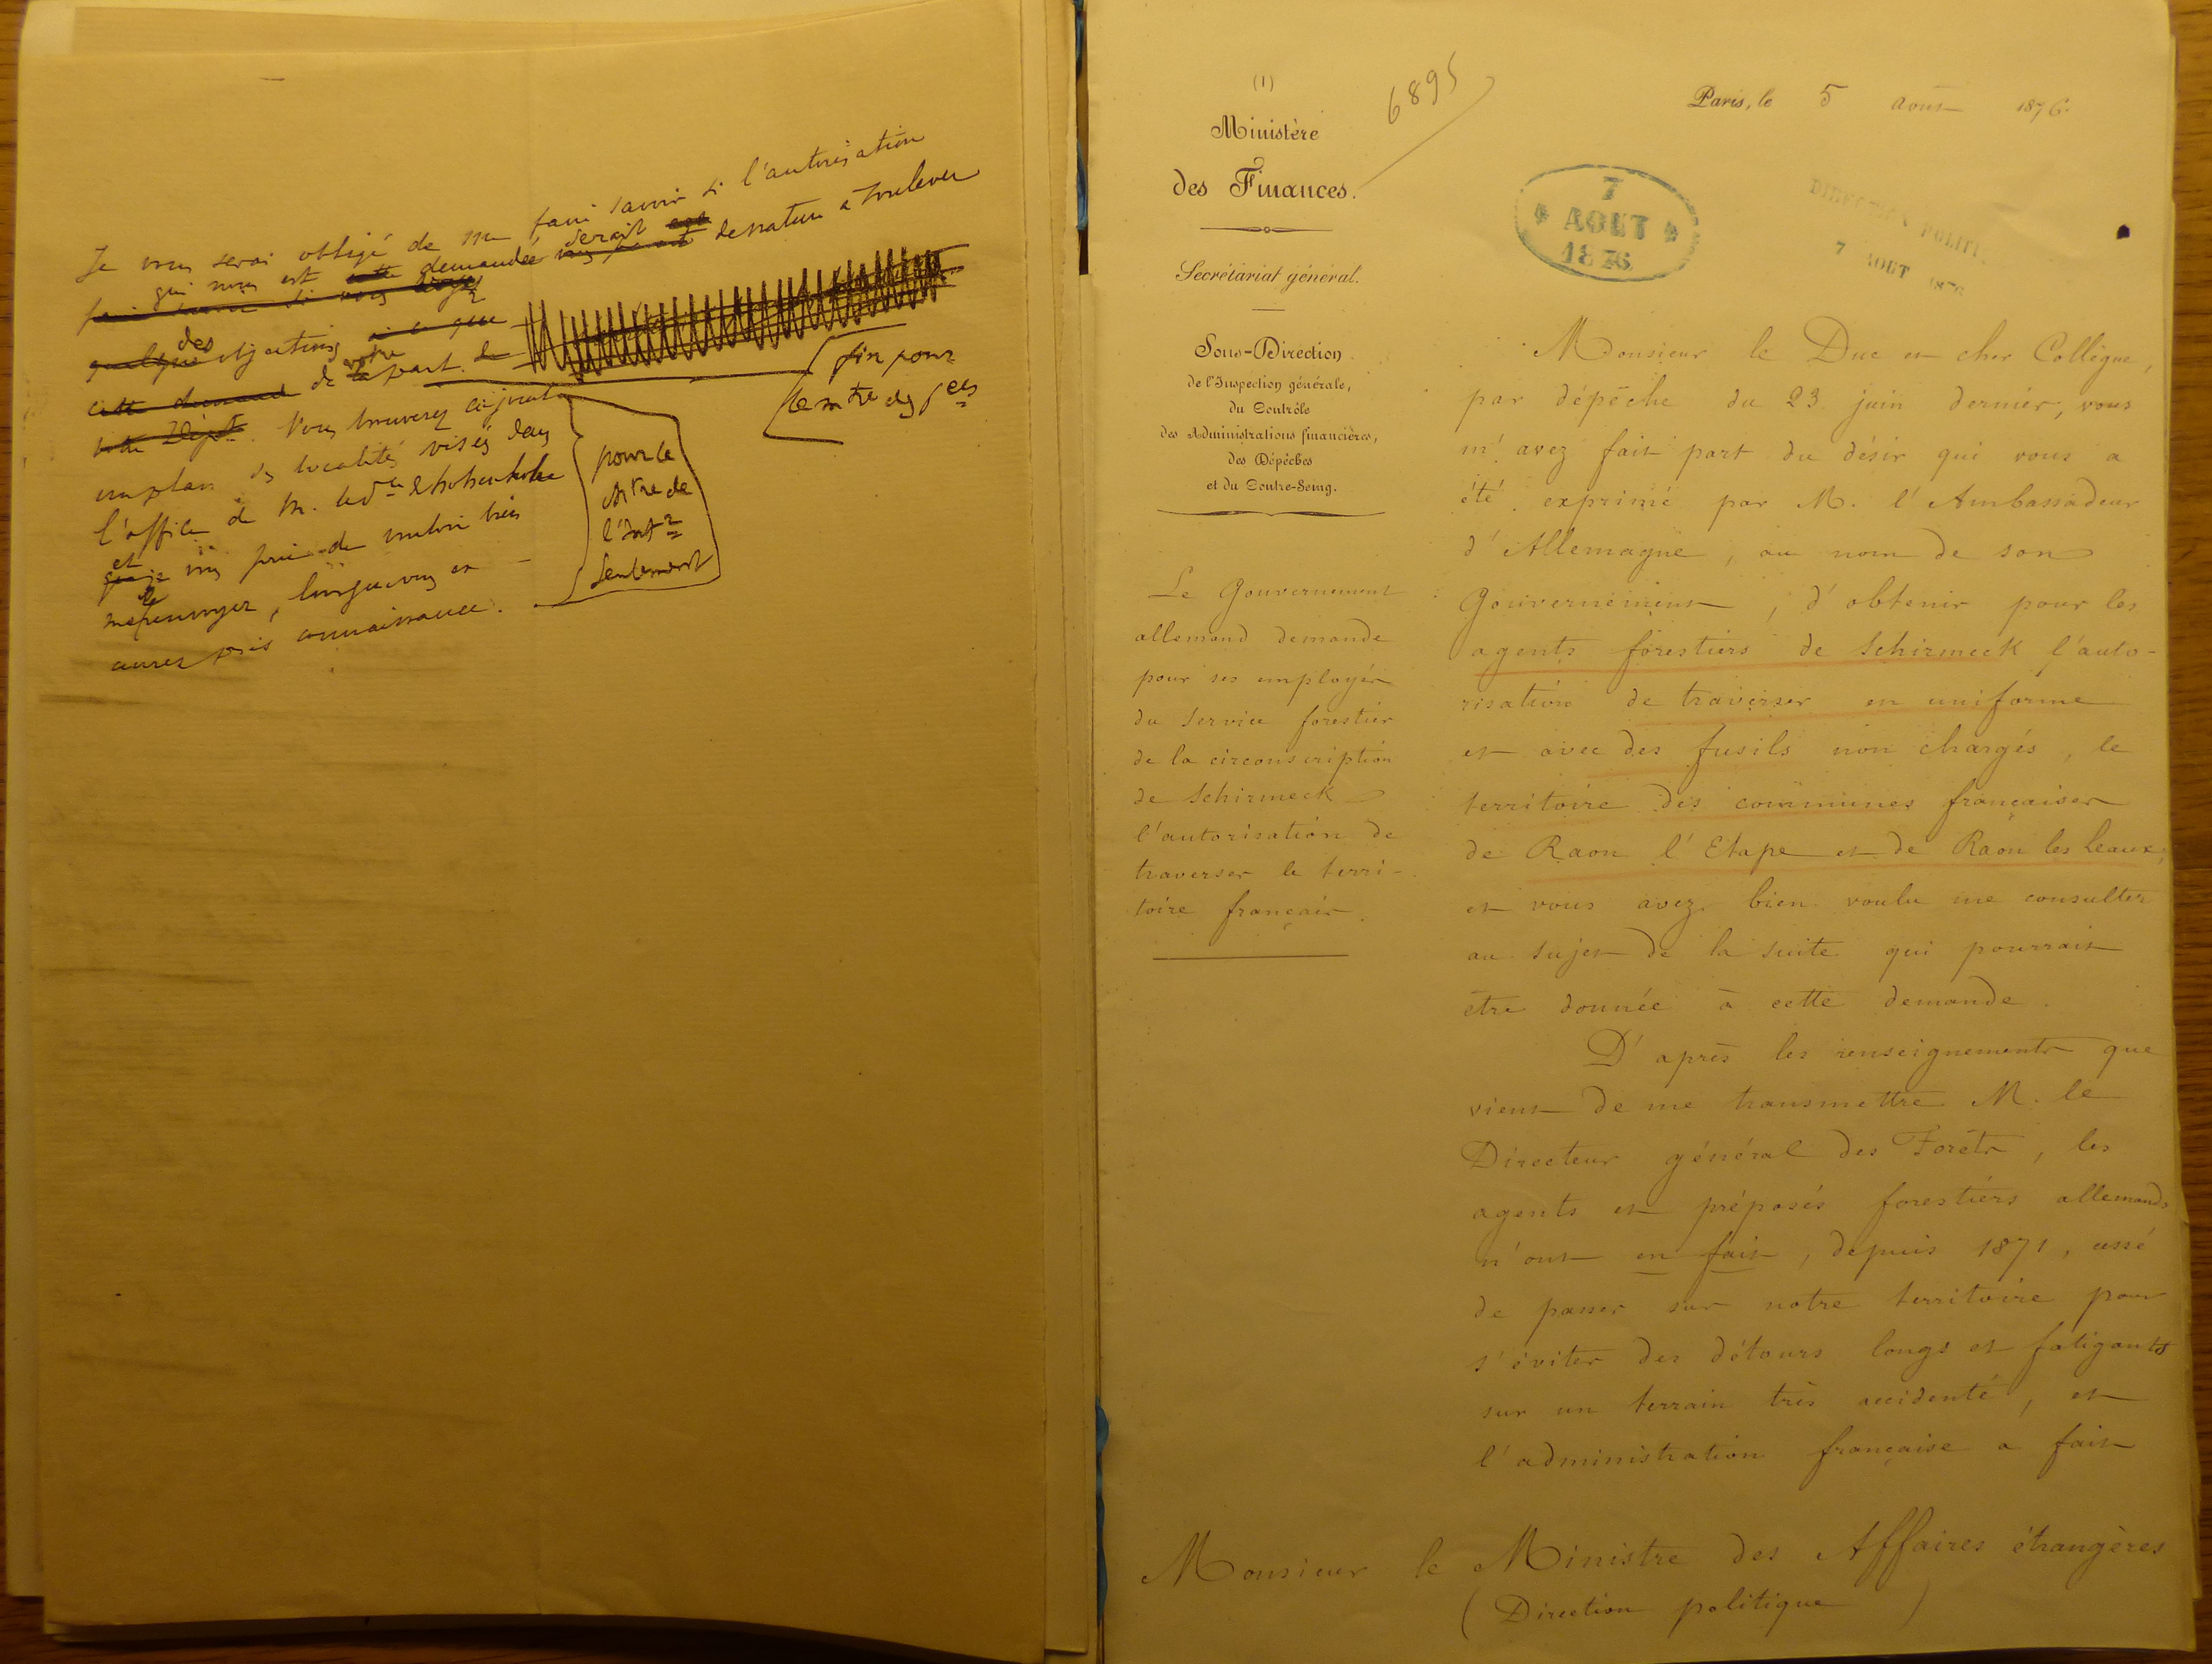 Je vous serai obligé de me faire savoir si l'autorisation
qui nous est demandée serait de nature à soulever
des objections
de votre part.
Vous trouverez ci-joint
un plan des localités visées dans
l'office de M. le de Hohenlohe
et vous prie de vouloir bien
me le renvoyer, lorsque vous en
aurez pris connaissance.
fin pour
le mtre des fces
pour le
mtre de
l'Intr
seulement
(1)
6895
Ministère
des Finances.
Secrétariat général.
Sous-Direction
de l'Inspection générale,
du Contrôle
des Administrations financières,
des Dépêches
et du Contre-Seing.
Le Gouvernement
allemand demande
pour ses employés
du service forestier
de la circonscription
de Schirmeck
l'autorisation de
traverser le terri-
toire français.
Paris, le 5 août 1876.
7
AOUT
1876
DIRECTION POLITI
7 AOUT 1876
Monsieur le Duc et cher Collègue,
par dépêche du 23 juin dernier, vous
m'avez fait part du désir qui vous a
été exprimé par M. l'Ambassadeur
d'Allemagne, au nom de son
Gouvernement, d'obtenir pour les
agents forestiers de Schirmeck l'auto-
risation de traverser en uniforme
et avec des fusils non chargés, le
territoire des communes françaises
de Raon l'Etape et de Raon les Leaux,
et vous avez bien voulu me consulter
au sujet de la suite qui pourrait
être donnée à cette demande.
D'après les renseignements que
vient de me transmettre M. le
Directeur général des Forêts, les
agents et préposés forestiers allemands
n'ont en fait, depuis 1871, cessé
de passer sur notre territoire pour
s'éviter des détours longs et fatigants
sur un terrain très accidenté, et
l'administration française a fait
Monsieur le Ministre des Affaires étrangères
(Direction politique)